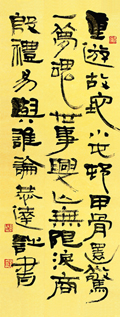 重游故地小屯邨甲骨還驚
一夢魂世事興亡無限浪商
殷禮易與誰論恭達詩書